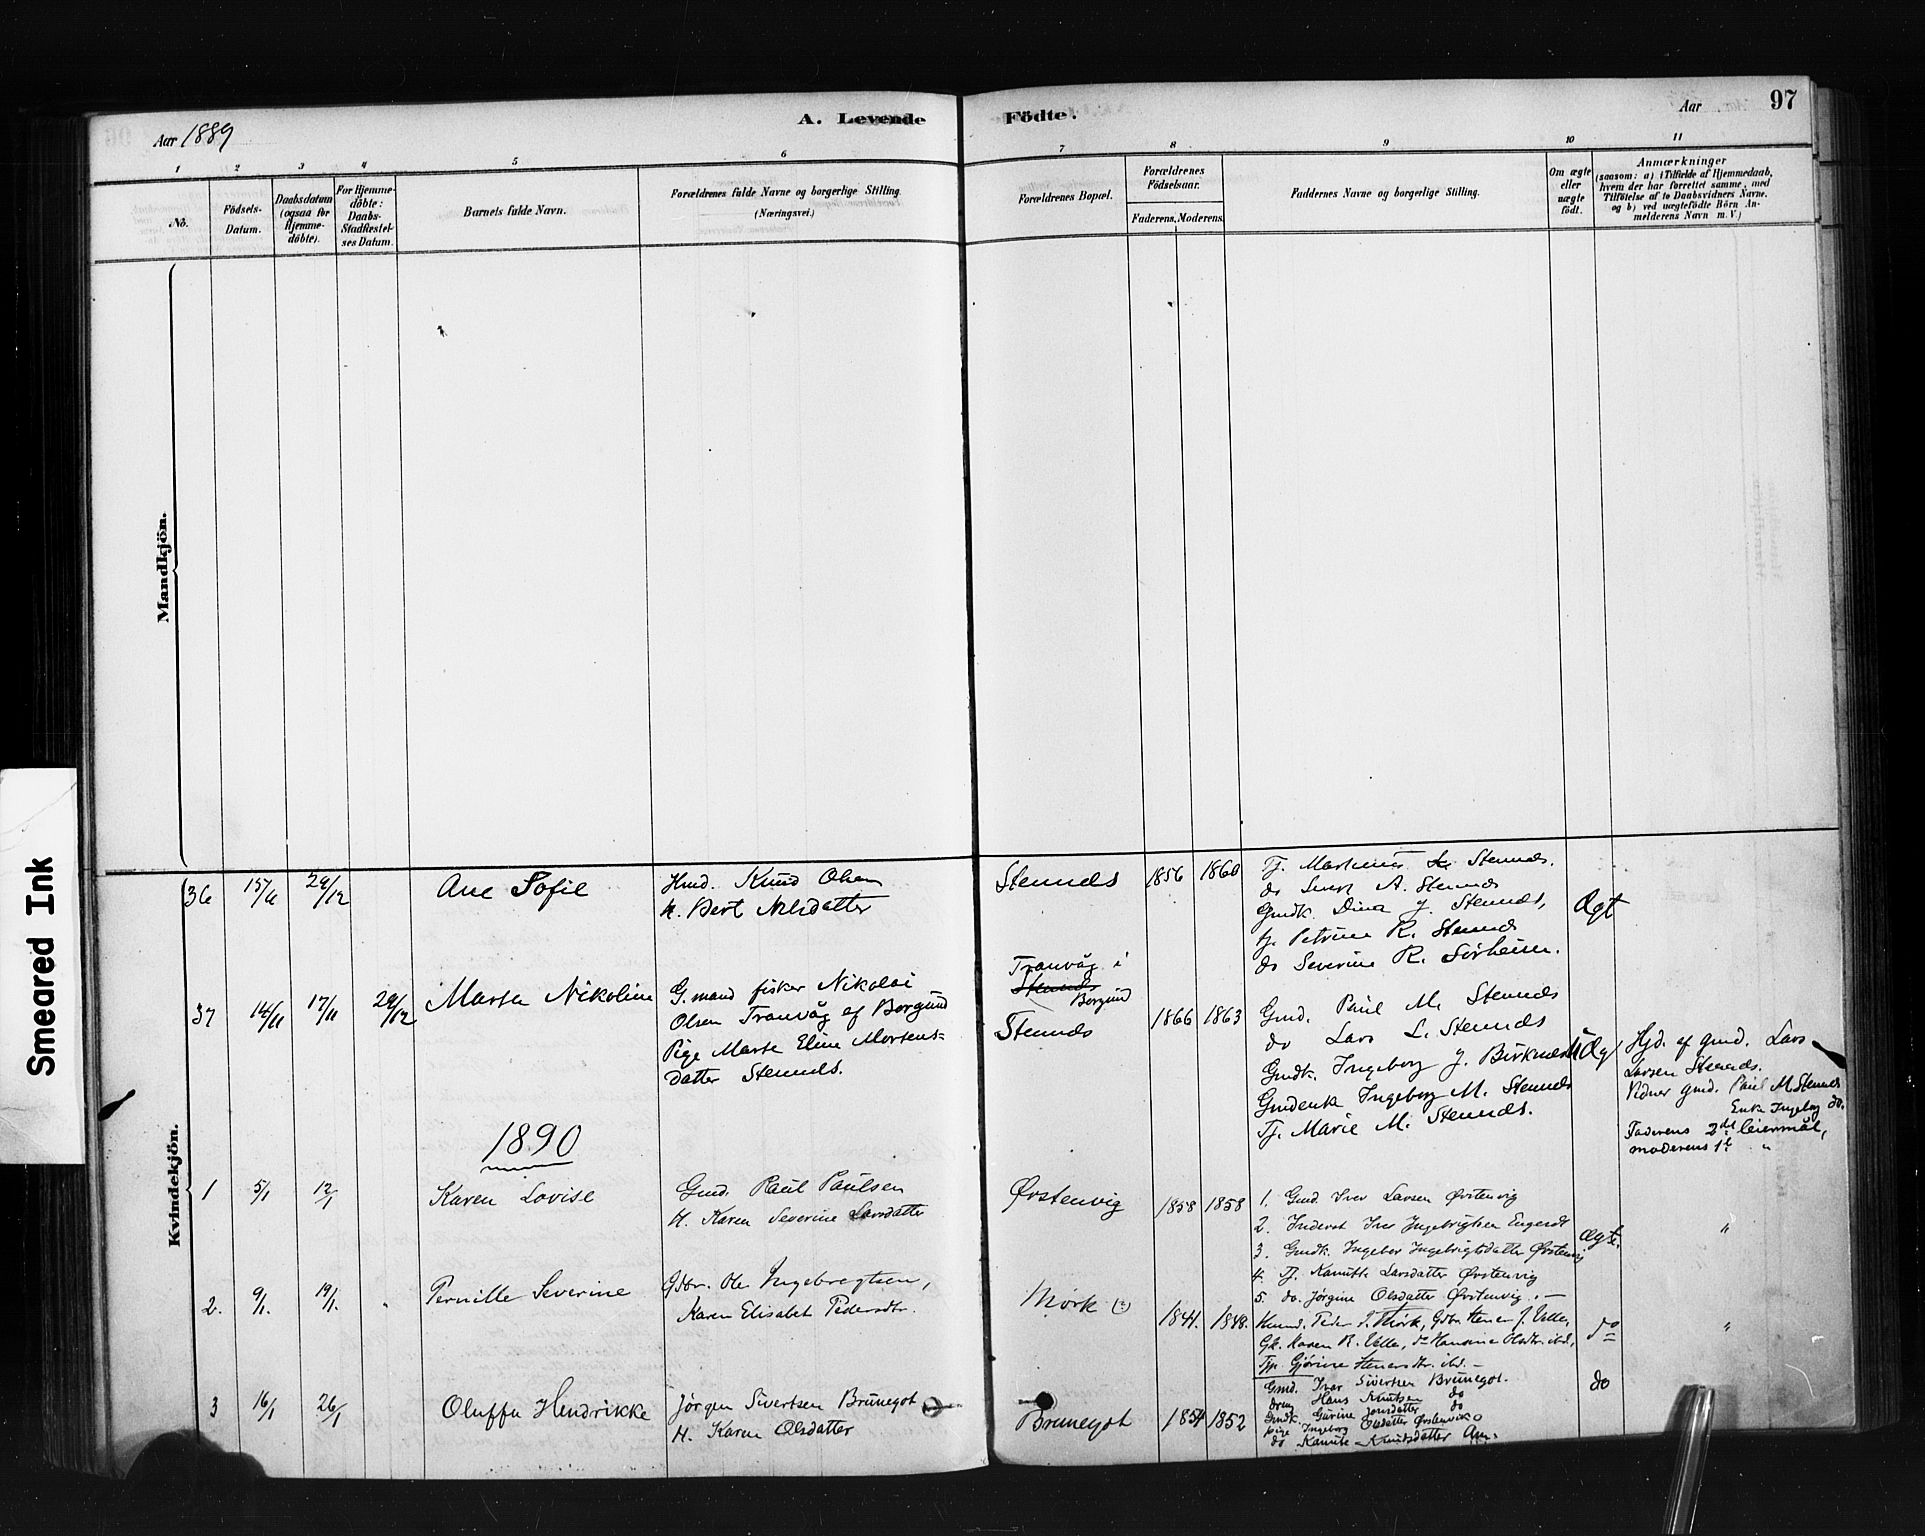 97
Aar 1889
A. Levende Födte.
Aar
1 2 3 4 5 6 7 8 9 10 11
No.
Födsels-Datum.
Daabsdatum (ogsaa for Hjemme-döbte).
For Hjemme-döbte: Daabs-Stadfæstel-ses Datum.
Barnets fulde Navn.
Forældrenes fulde Navne og borgerlige Stilling. (Næringsvei.)
Forældrenes Bopæl.
Forældrenes Födselsaar.
Faderens. Moderens.
Faddernes Navne og borgerlige Stilling.
Om ægte eller uægte födt.
Anmærkninger
(saasom: a) i Tilfælde af Hjemmedaab, hvem der har forrettet samme, med Tilföielse af to Daabsvidners Navne, og b) ved uægtefödte Börn An-melderens Navn m. V.)
Mandkjön.
Kvindekjön.
Smeared Ink
36 29/12 Ane Sofie
Hmd. Knud Olsen
H. Bert Nilsdatter
Stennes 1856 1860
Tj. Martinus Stennes.
do A. Stennes
Gmdk. Dina J. Stennes,
tj. Petrine R. Stennes
do Severine R. Sörheim.
Ægt
37 14/11 17/11 29/12 Marta Nikoline
G.mand fisker Nikolai
Olsen Tranvåg af Borgund
Pige Marte Eline Mortens-
datter Stennes.
Tranvåg i
Stennes
Borgund
Stennes
1866 1863
Gmd. Paul M. Stennes
do Lars L. Stennes
Gmdk. Ingeborg J. Birknes
Gmdenk Ingeborg M. Stennes
Tj. Marie M. Stennes.
Uæg
Hjd. af gmd. Lars
Larsen Stennes.
Vidner gmd. Paul M Stennes
Enk. Ingebog do.
Faderens 2det leiermål,
moderens 1t "
1890
1 5/1 12/1 Karen Lovise
Gmd. Paul Paulsen
H. Karen Severine Larsdatter
Örstenvig 1858 1858
1. Gmd Iver Larsen Örstenvig
2. Inderst Iver Ingebrigtsen
3. Gmdk. Ingebor Ingebrigtsdatter Örstenvig
4. Tj. Larsdatter Örstenvig
5. do. Jörgine Olsdatter Örstenvig. -
Ægte. "
2. 9/1. 19/1. " Pernille Severine
Gdbr. Ole Ingebregtsen,
Karen Elisabet Pedersdtr.
Mork 1841. 1848.
Peder J. Mork, Gdbr. J. Velle,
Gk. Karen R. Velle, do Olsdtr. ibd.,
Gjörine ibd. -
do "
3 16/1 26/1 Oluffa Hendrikke
Jörgen Sivertsen Brunegot
H. Karen Olsdatter
Brunegot 1854 1852
Gmd. Ivar Sivertsen Brunegot.
dreng Hans Knutsen do
Gmdk. Gurine Jonsdatter do
pige Ingeborg Olsdatter Örstenvik
do Knutsdatter
do